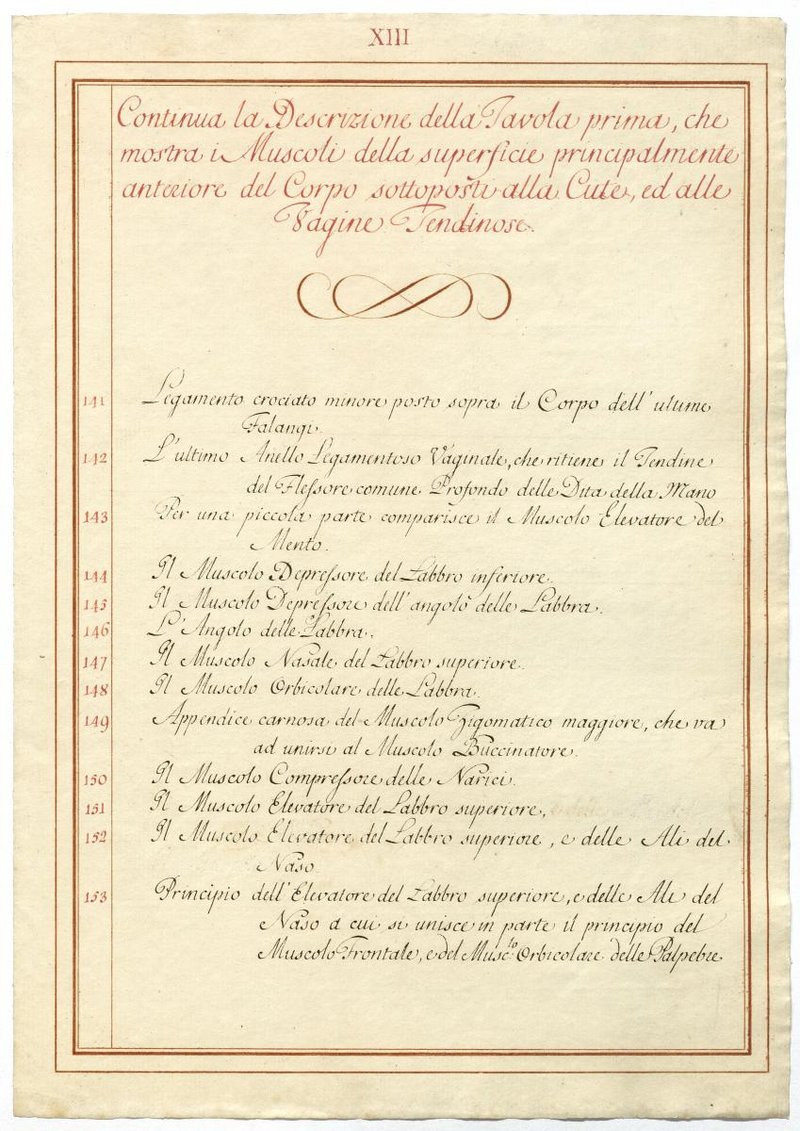 XIII
Continua la Descrizione della Tavola prima, che
mostra i Muscoli della superficie principalmente
anteriore del Corpo sottoposti alla Cute, ed alle
Vagine Tendinose.
141 Legamento crociato minore posto sopra il Corpo dell' ultime
Falangi.
142 L'ultimo Anello Legamentoso Vaginale, che ritiene il Tendine
del Flessore comune Profondo delle Dita della Mano
143 Per una piccola parte comparisce il Muscolo Elevatore del
Mento.
144 Il Muscolo Depressore del Labbro inferiore.
145 Il Muscolo Depressore dell' angolo delle Labbra.
146 L'Angolo delle Labbra.
147 Il Muscolo Nasale del Labbro superiore.
148 Il Muscolo Orbicolare delle Labbra.
149 Appendice carnosa del Muscolo Zigomatico maggiore, che va
ad unirsi al Muscolo Buccinatore.
150 Il Muscolo Compressore delle Narici.
151 Il Muscolo Elevatore del Labbro superiore,
152 Il Muscolo Elevatore del Labbro superiore, e delle Ali del
Naso
153 Principio dell' Elevatore del Labbro superiore, e delle Ale del
Naso a cui si unisce in parte il principio del
Muscolo Frontale, e del Musc.lo Orbicolare delle Palpebre